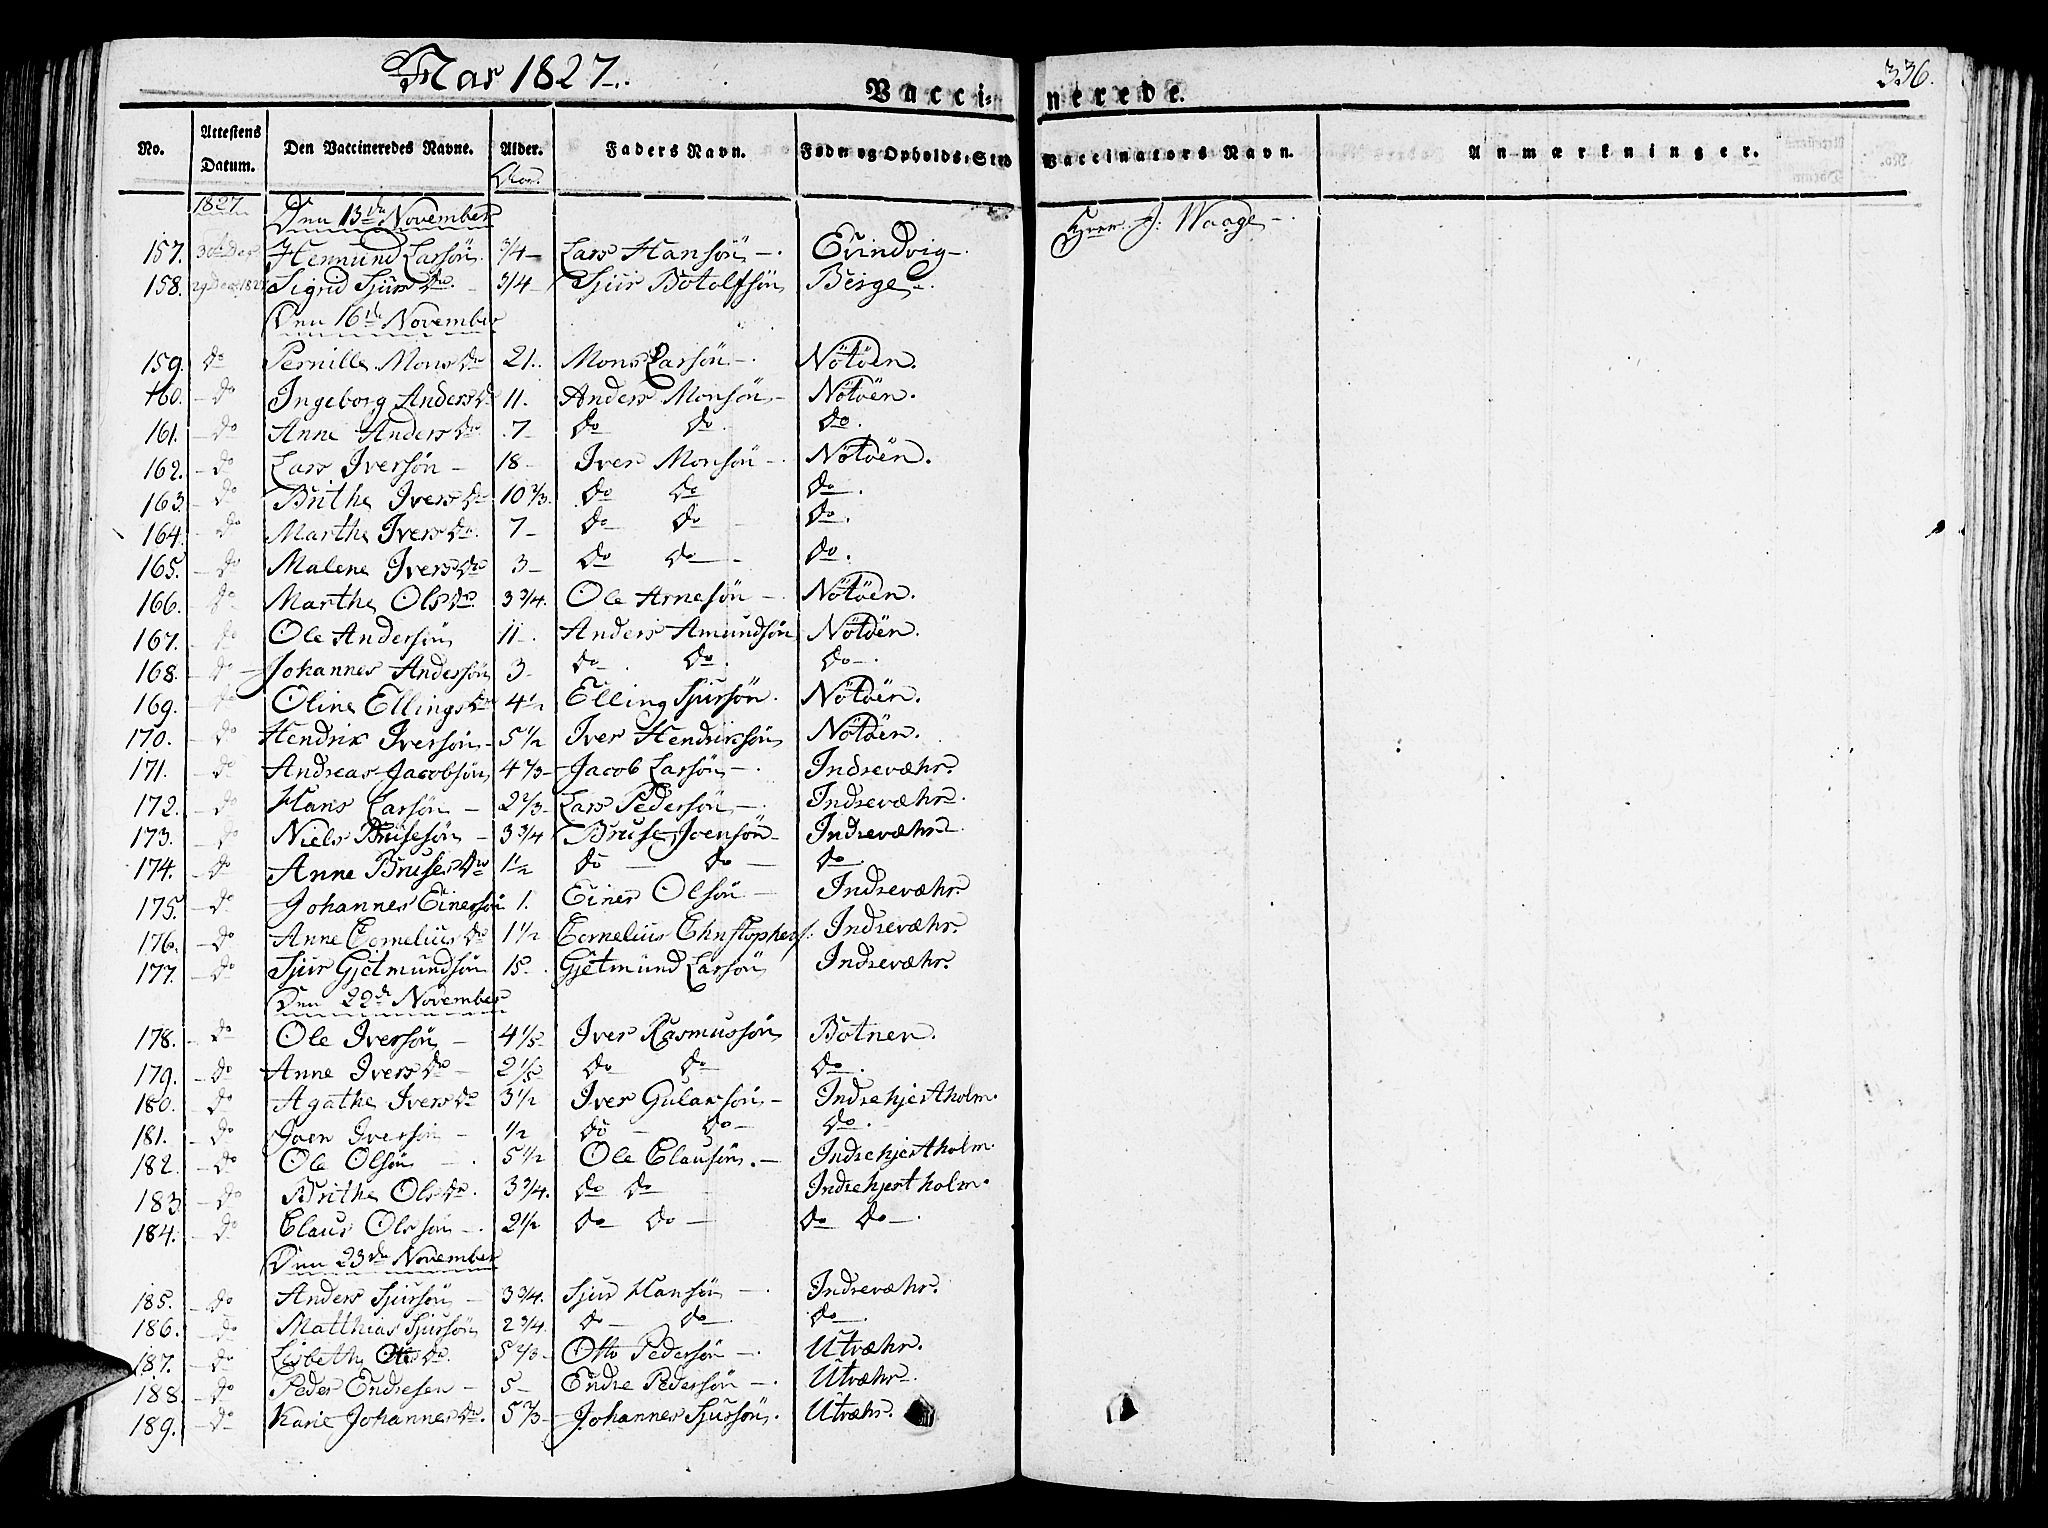 Aar 1827.
Vaccinerede.
336.
No. Attestens Datum. Den Vaccineredes Navne. Alder. Faders Navn. Føde og Opholds-Sted Vaccinators Navn. Anmærkninger.
Aar.
1827 Den 13de November Herr J: Waage
157. 30te Hermund Larsön 3/4 Lars Hansön Evindvig
158. 29 Dec. Sigrid Sjursdr 3/4 Sjur Botolfsön Berge
Den 16de November
159. do Pernille Monsdr 21. Mons Larsön Nötöen.
160. do Ingeborg Andersdr 11. Anders Monsön Nötöen.
161. do Anne Andersdr 7 do do do.
162. do Lars Iversön 18 Iver Monsön Nötöen.
163. do Brithe Iversdr 10 2/3. do do do.
164. do Marthe Iversdr. 7 do do do.
165. do Malene Iversdr 3 do do do.
166. do Marthe Olsdr. 3 3/4. Ole Arnesön Nötöen.
167. do Ole Andersön 11. Anders Amundsön Nötöen.
168. do Johannes Andersön 3 do do. do.
169. do Oline Ellingsdr 4 1/2 Elling Sjursön. Nötöen.
170. do Hendrik Iversön 5 1/2 Iver Hendriksön Nötöen.
171. do Andreas Jacobsön 4 2/3 Jacob Larsön Indrevæhr.
172. do Hans Larsön 2 2/3 Lars Pedersön Indrevæhr.
173. do Niels Brusesön 3 3/4 Bruse Joensön Indrevæhr
174. do Anne Brusesdr 1 1/2 do do do
175. do Johannes Einersön 1. Einer Olsön Indrevæhr.
176. do Anne Corneliusdr 1 1/2 Cornelius Christophers: Indrevæhr.
177. do Sjur Gjetmundsön 15 Gjetmund Larsön Indrevæhr.
Den 22de November
178. do Ole Iversön 4 1/5 Iver Rasmussön Botnen.
179. do Anne Iversdr 2 1/5 do do do.
180. do Agathe Iversdr 3 1/2 Iver Gulaksön Indrehjertholm.
181. do Joen Iversön 1/2 do do do.
182. do Ole Olsön 5 1/2 Ole Clausön. Indrehjertholm.
183 do Brithe Olsdr. 3 3/4. do do Indrehjertholm.
184. do Claus Olssön 2 1/2 do do do do
Den 23de November
185. do Anders Sjursön 3 3/4. Sjur Hansön Indrevæhr.
186. do Matthias Sjursön 2 3/4. do do do
187. do Lisbeth Ottosdr. 5 2/3 Otto Pedersön Utvæhr.
188 do Peder Endresen 5 Endre Pedersön Utvæhr.
189. do Karie Johannesdr. 5 2/3 Johannes Sjursön. Utvæhr.